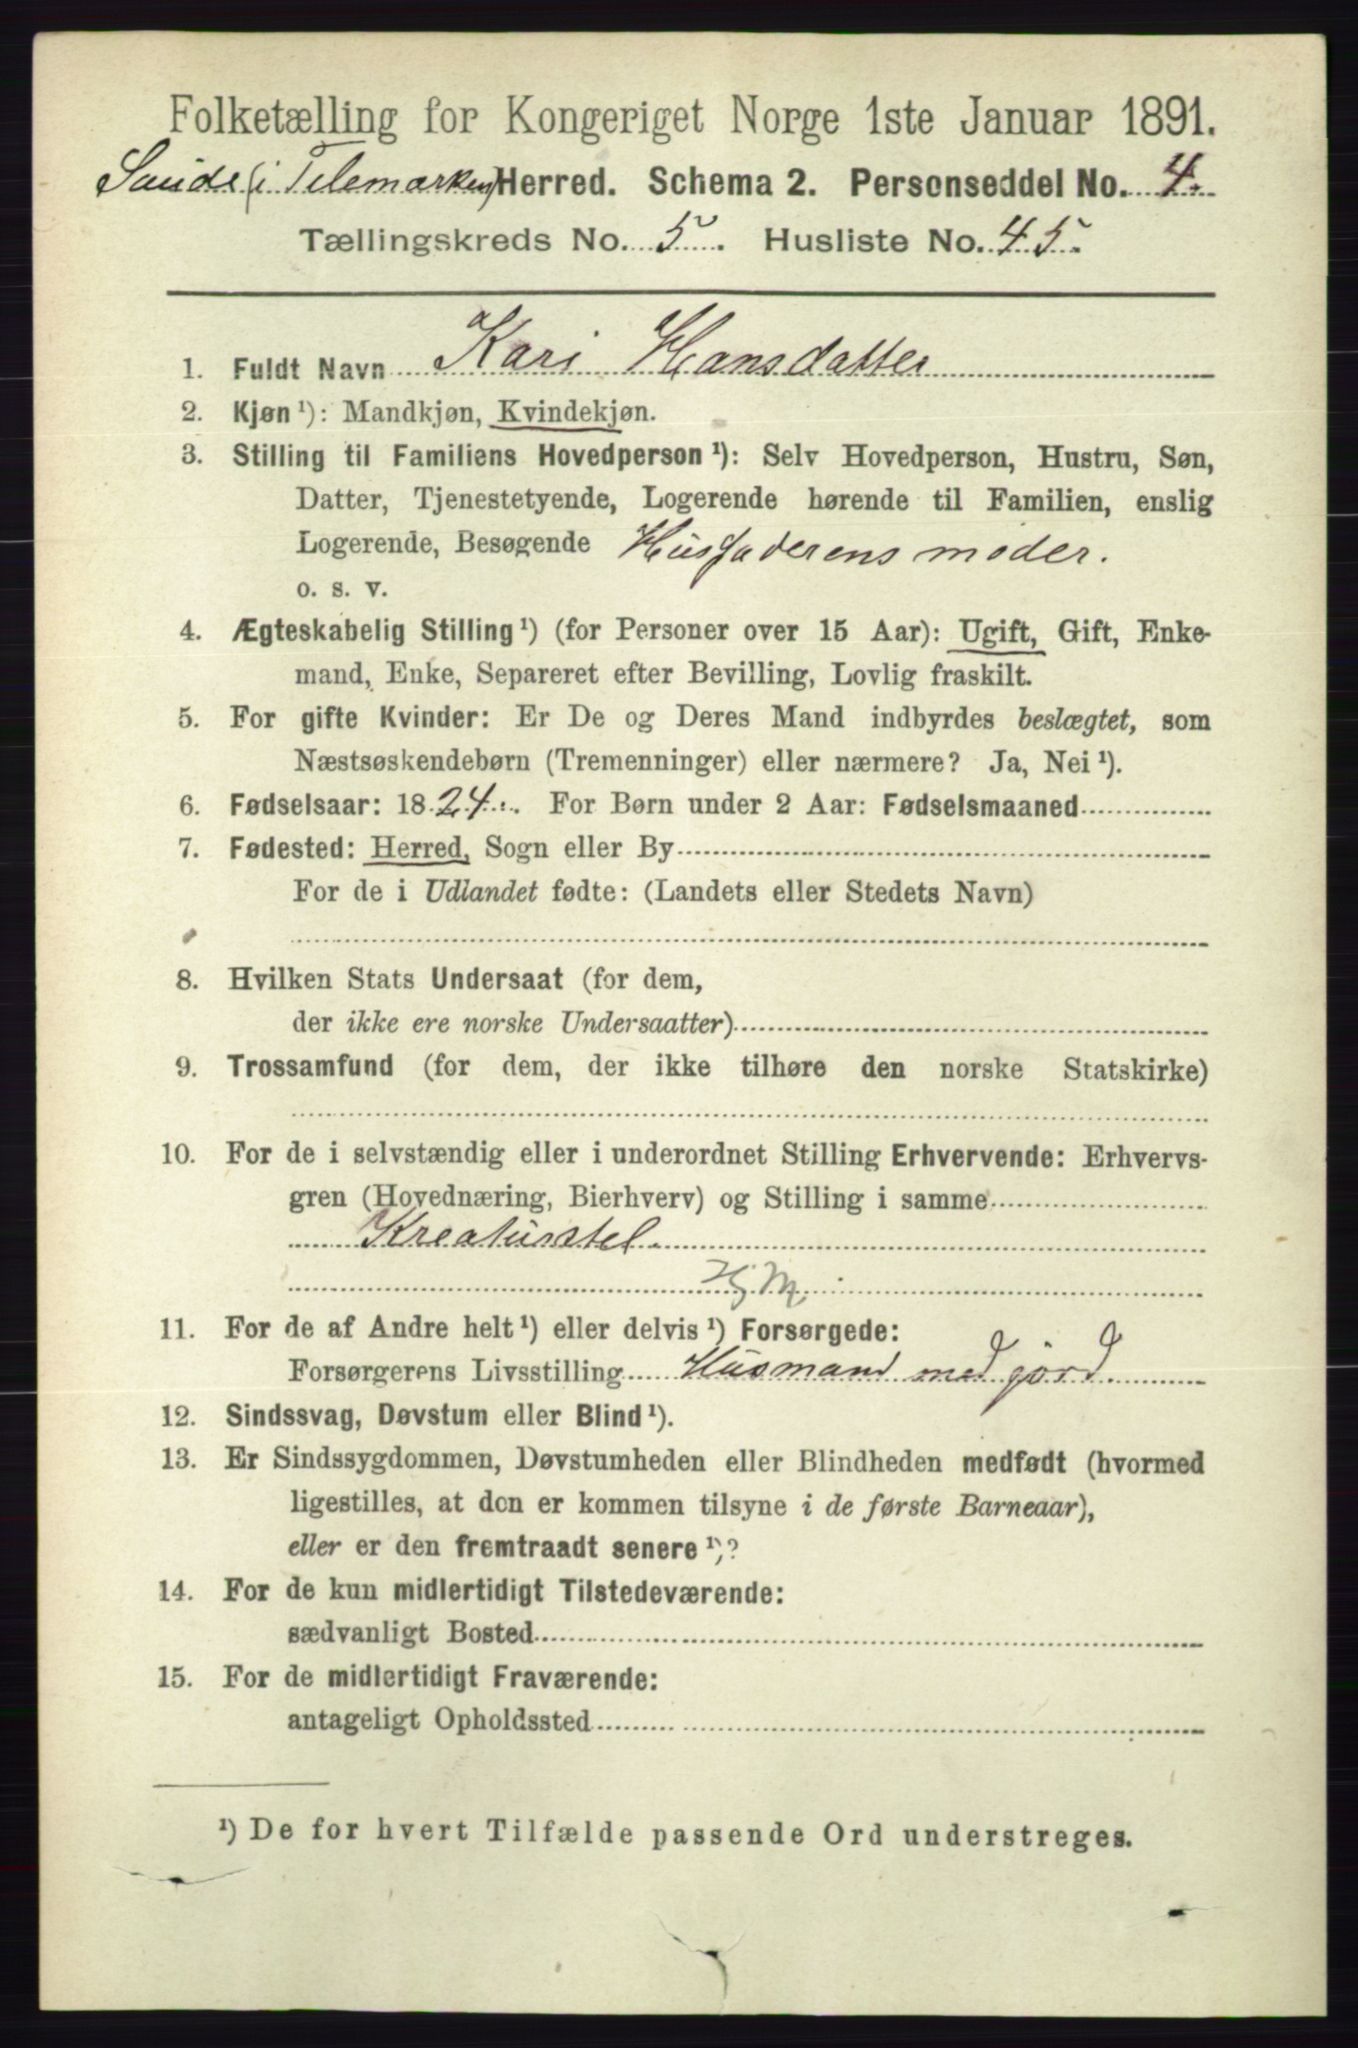 Folketælling for Kongeriget Norge 1ste Januar 1891.
Saude (i Telemarken) Herred. Schema 2. Personseddel No. 4.
Tællingskreds No. 5. Husliste No. 45.
1. Fuldt Navn Kari Hansdatter
2. Kjøn ¹): Mandkjøn, Kvindekjøn.
3. Stilling til Familiens Hovedperson ¹): Selv Hovedperson, Hustru, Søn,
Datter, Tjenestetyende, Logerende hørende til Familien, enslig
Logerende, Besøgende Husfaderens moder.
o. s. v.
4. Ægteskabelig Stilling ¹) (for Personer over 15 Aar): Ugift, Gift, Enke-
mand, Enke, Separeret efter Bevilling, Lovlig fraskilt.
5. For gifte Kvinder: Er De og Deres Mand indbyrdes beslægtet, som
Næstsøskendebørn (Tremenninger) eller nærmere? Ja, Nei ¹).
6. Fødselsaar: 1824. For Børn under 2 Aar: Fødselsmaaned
7. Fødested: Herred, Sogn eller By
For de i Udlandet fødte: (Landets eller Stedets Navn)
8. Hvilken Stats Undersaat (for dem,
der ikke ere norske Undersaatter)
9. Trossamfund (for dem, der ikke tilhøre den norske Statskirke)
10. For de i selvstændig eller i underordnet Stilling Erhvervende: Erhvervs-
gren (Hovednæring, Bierhverv) og Stilling i samme
Kreaturstel.
11. For de af Andre helt ¹) eller delvis ¹) Forsørgede:
Forsørgerens Livsstilling Husmand med jord.
12. Sindssvag, Døvstum eller Blind ¹).
13. Er Sindssygdommen, Døvstumheden eller Blindheden medfødt (hvormed
ligestilles, at den er kommen tilsyne i de første Barneaar),
eller er den fremtraadt senere ¹)?
14. For de kun midlertidigt Tilstedeværende:
sædvanligt Bosted
15. For de midlertidigt Fraværende:
antageligt Opholdssted
¹) De for hvert Tilfælde passende Ord understreges.